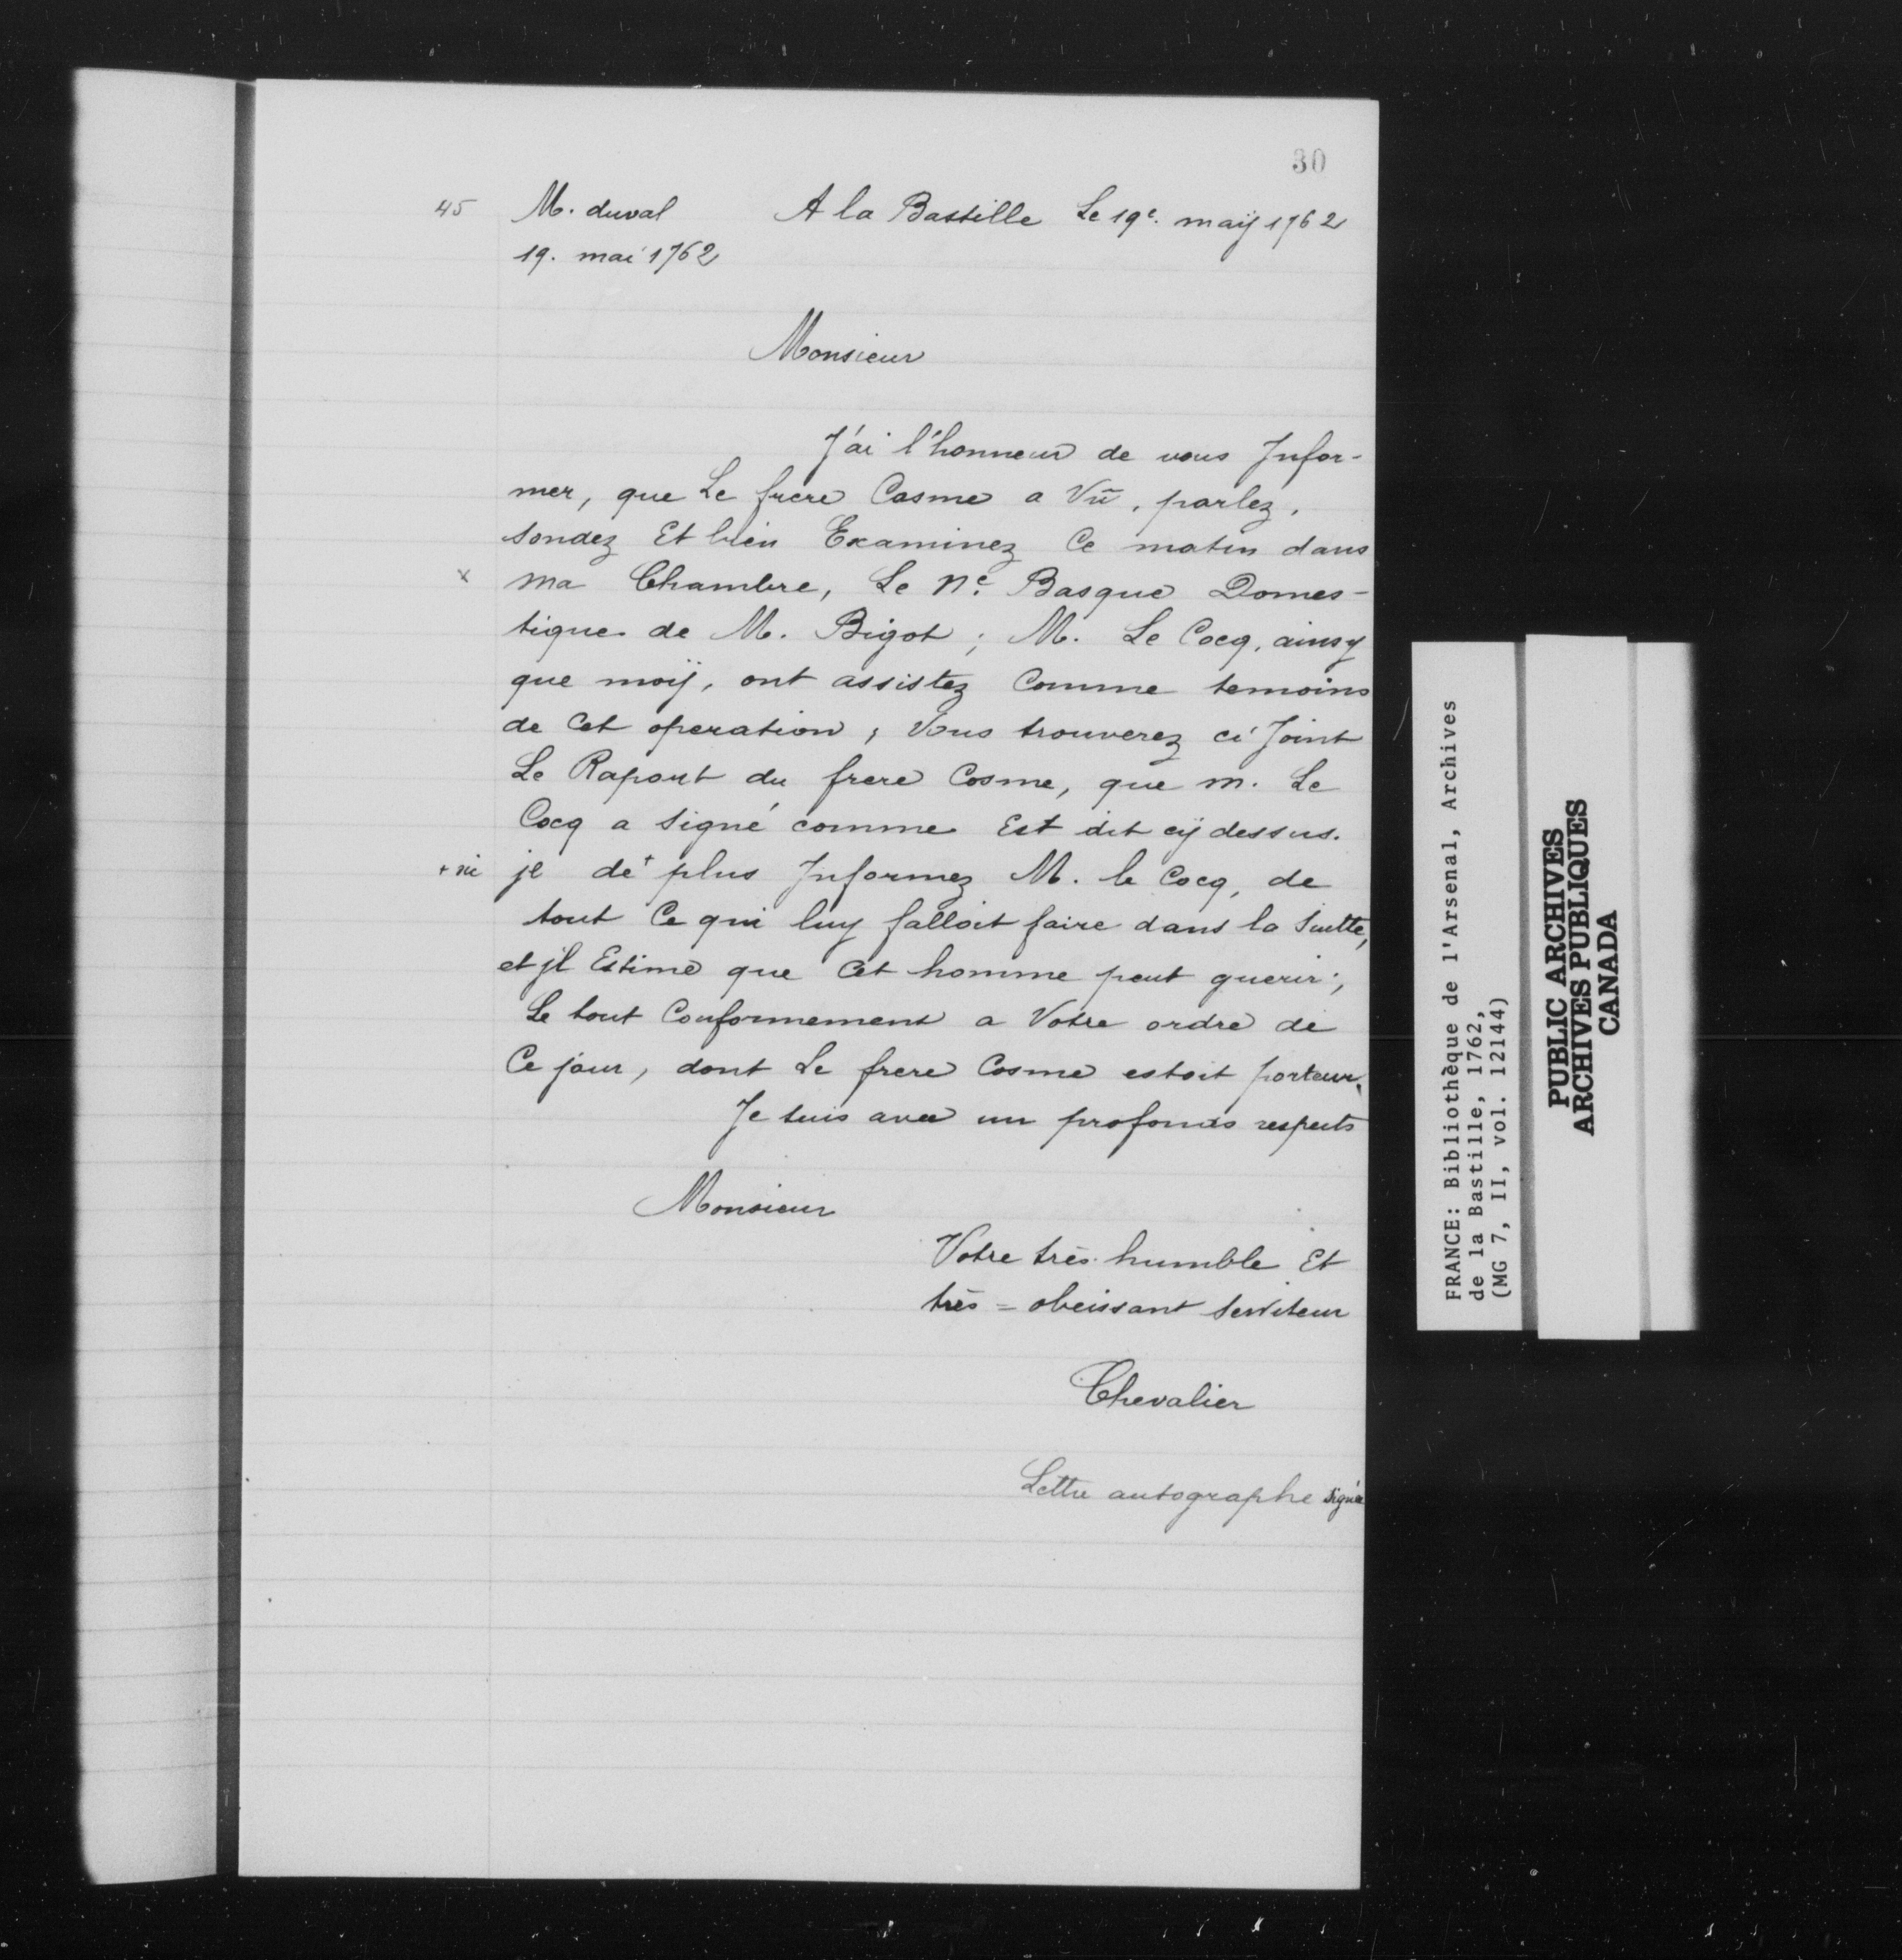 30
45 M. duval A la Bastille Le 19e. maÿ 1762
19. mai 1762
Monsieur
J'ai l'honneur de vous Jnfor-
mer, que Le frere Cosme a Vû, parlez,
sondez Et bien Examinez Ce matin dans
x ma Chambre, Le Né. Basque Domes-
tique de M. Bigot; M. Le Cocq, ainsy
que moÿ, ont assistez Comme temoins
de Cet operation; Vous trouverez ci Joint
Le Raport du frere Cosme, que m. Le
Cocq a Signé comme Est dit cÿ dessus.
je de + plus Jnformez M. le Cocq, de
tout Ce qui luy falloit faire dans la Suitte,
et jl Estime que Cet homme peut guerir;
Le tout Conformement a Votre ordre de
Ce jour, dont Le frere Cosme estoit porteur.
Je suis avec un profonds respects
Monsieur
Votre très humble Et
très = obeissant Serviteur
Chevalier
Lettre autographe signée
FRANCE: Bibliothèque de l'Arsenal, Archives
de la Bastille, 1762,
(MG 7, II, vol. 12144)
PUBLIC ARCHIVES
ARCHIVES PUBLIQUES
CANADA